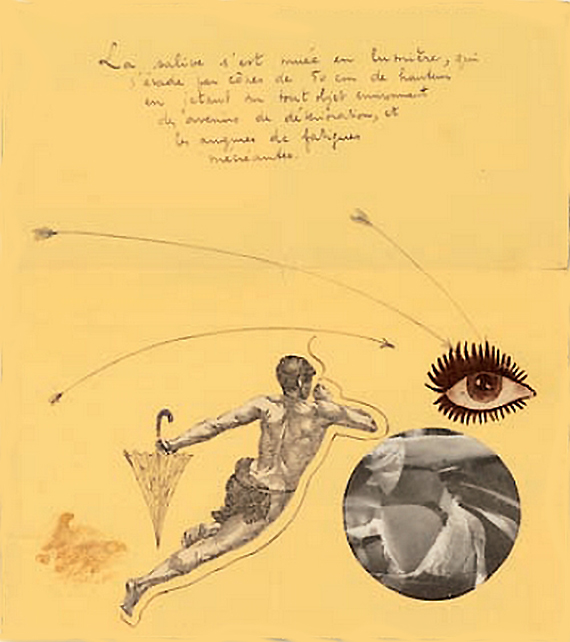 La salive s'est muée en lumière, qui
s'évade par cônes de 50 cm de hauteur
en jetant sur tout objet environnant
des avenirs de détérioration, et
les augures de fatigues